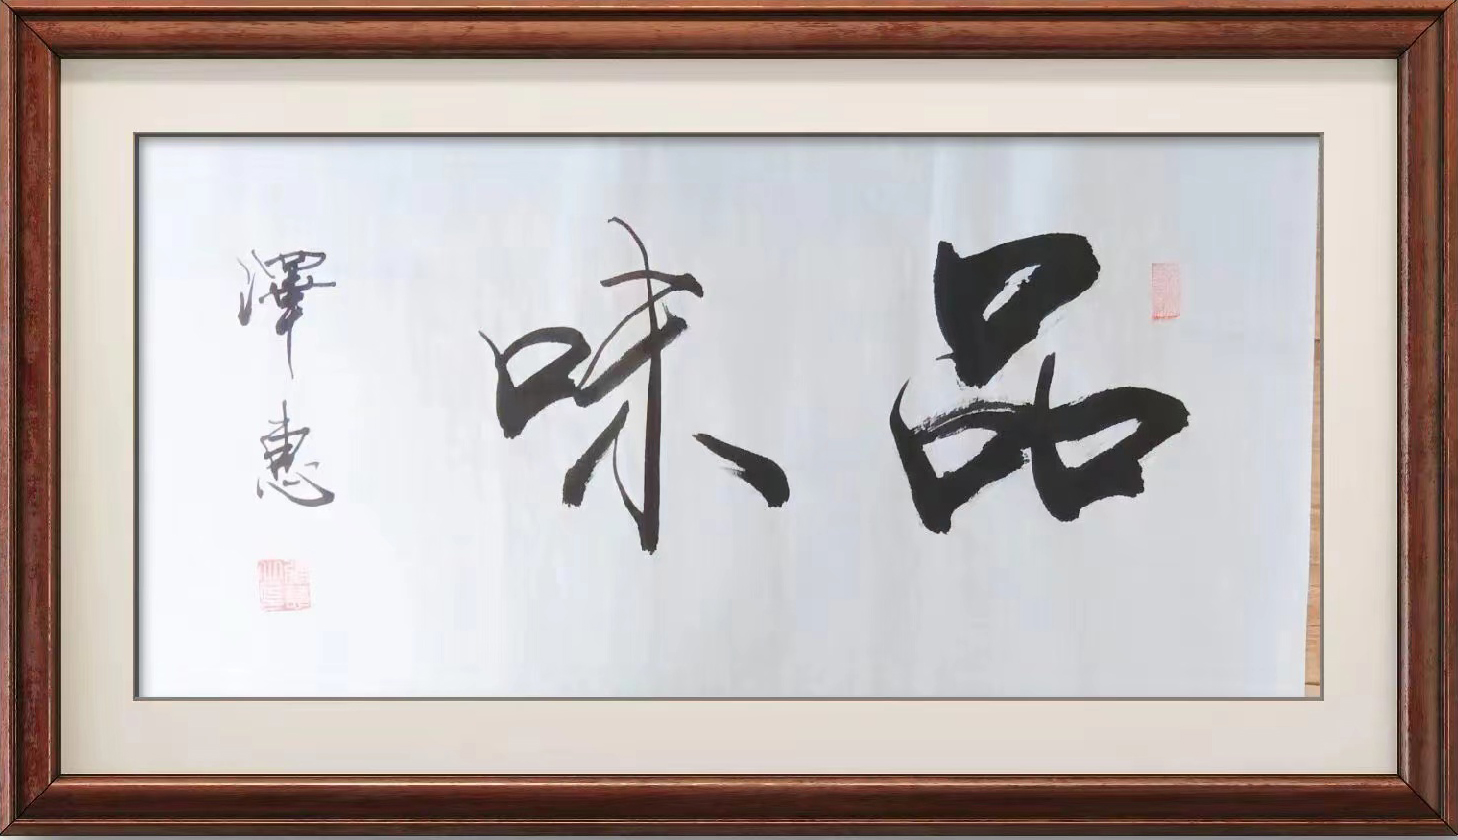 品味
澤惠